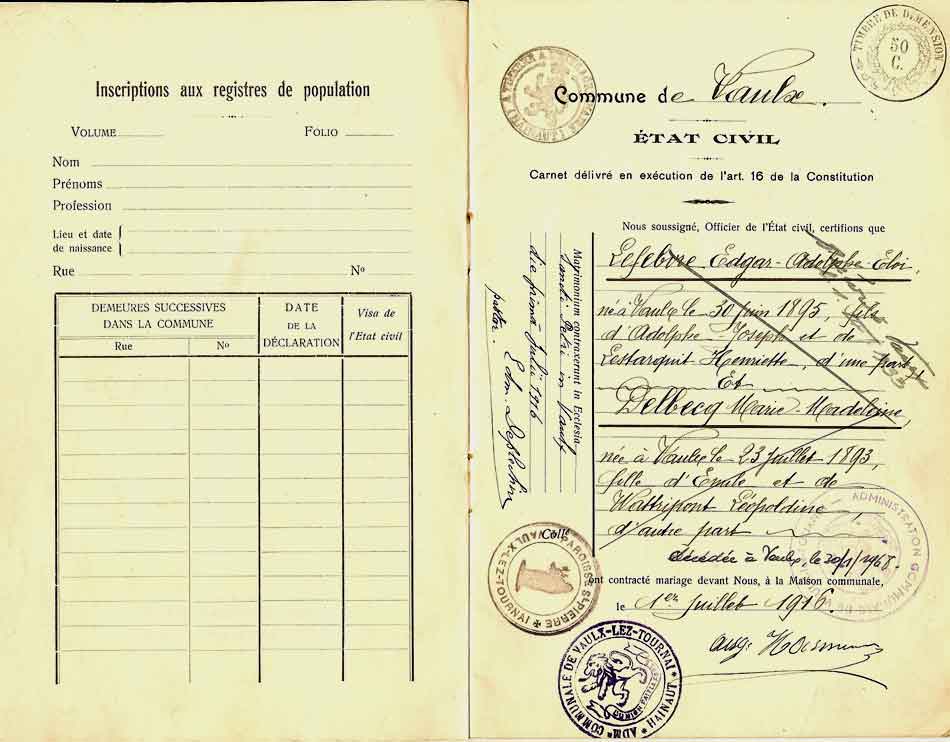 Inscriptions aux registres de population
VOLUME FOLIO
Nom
Prénoms
Profession
Lieu et date
de naissance
Rue No
DEMEURES SUCCESSIVES
DANS LA COMMUNE
Rue No
DATE
DE LA
DÉCLARATION
Visa de
l'Etat civil
TIMBRE DE DIMENSION
50
C.
Commune de Vaulx.
ÉTAT CIVIL
Carnet délivré en exécution de l'art. 16 de la Constitution
Nous soussigné, Officier de l'État civil, certifions que
Lefebvre Edgar-Adolphe-Eloi,
né à Vaulx le 30 juin 1895, fils
d'Adolphe-Joseph et de
Lestarquit Henriette, d'une part
Et
Delbecq Marie-Madeleine,
née à Vaulx le 23 juillet 1893,
fille d'Emile et de
Wattripont Léopoldine,
d'autre part
Décédée à Vaulx, le 30/1/1968.
ont contracté mariage devant Nous, à la Maison communale,
le 1er juillet 1916.
Matrimonium contraxerunt in Ecclesia
Sancti Petri in Vaulx
die prima Julii 1916
pastor.
PAROISSE ST PIERRE
VAULX-LEZ-TOURNAI
ADMINISTRATION COMMUNALE
ADMon COMMUNALE DE VAULX-LEZ-TOURNAI
HAINAUT